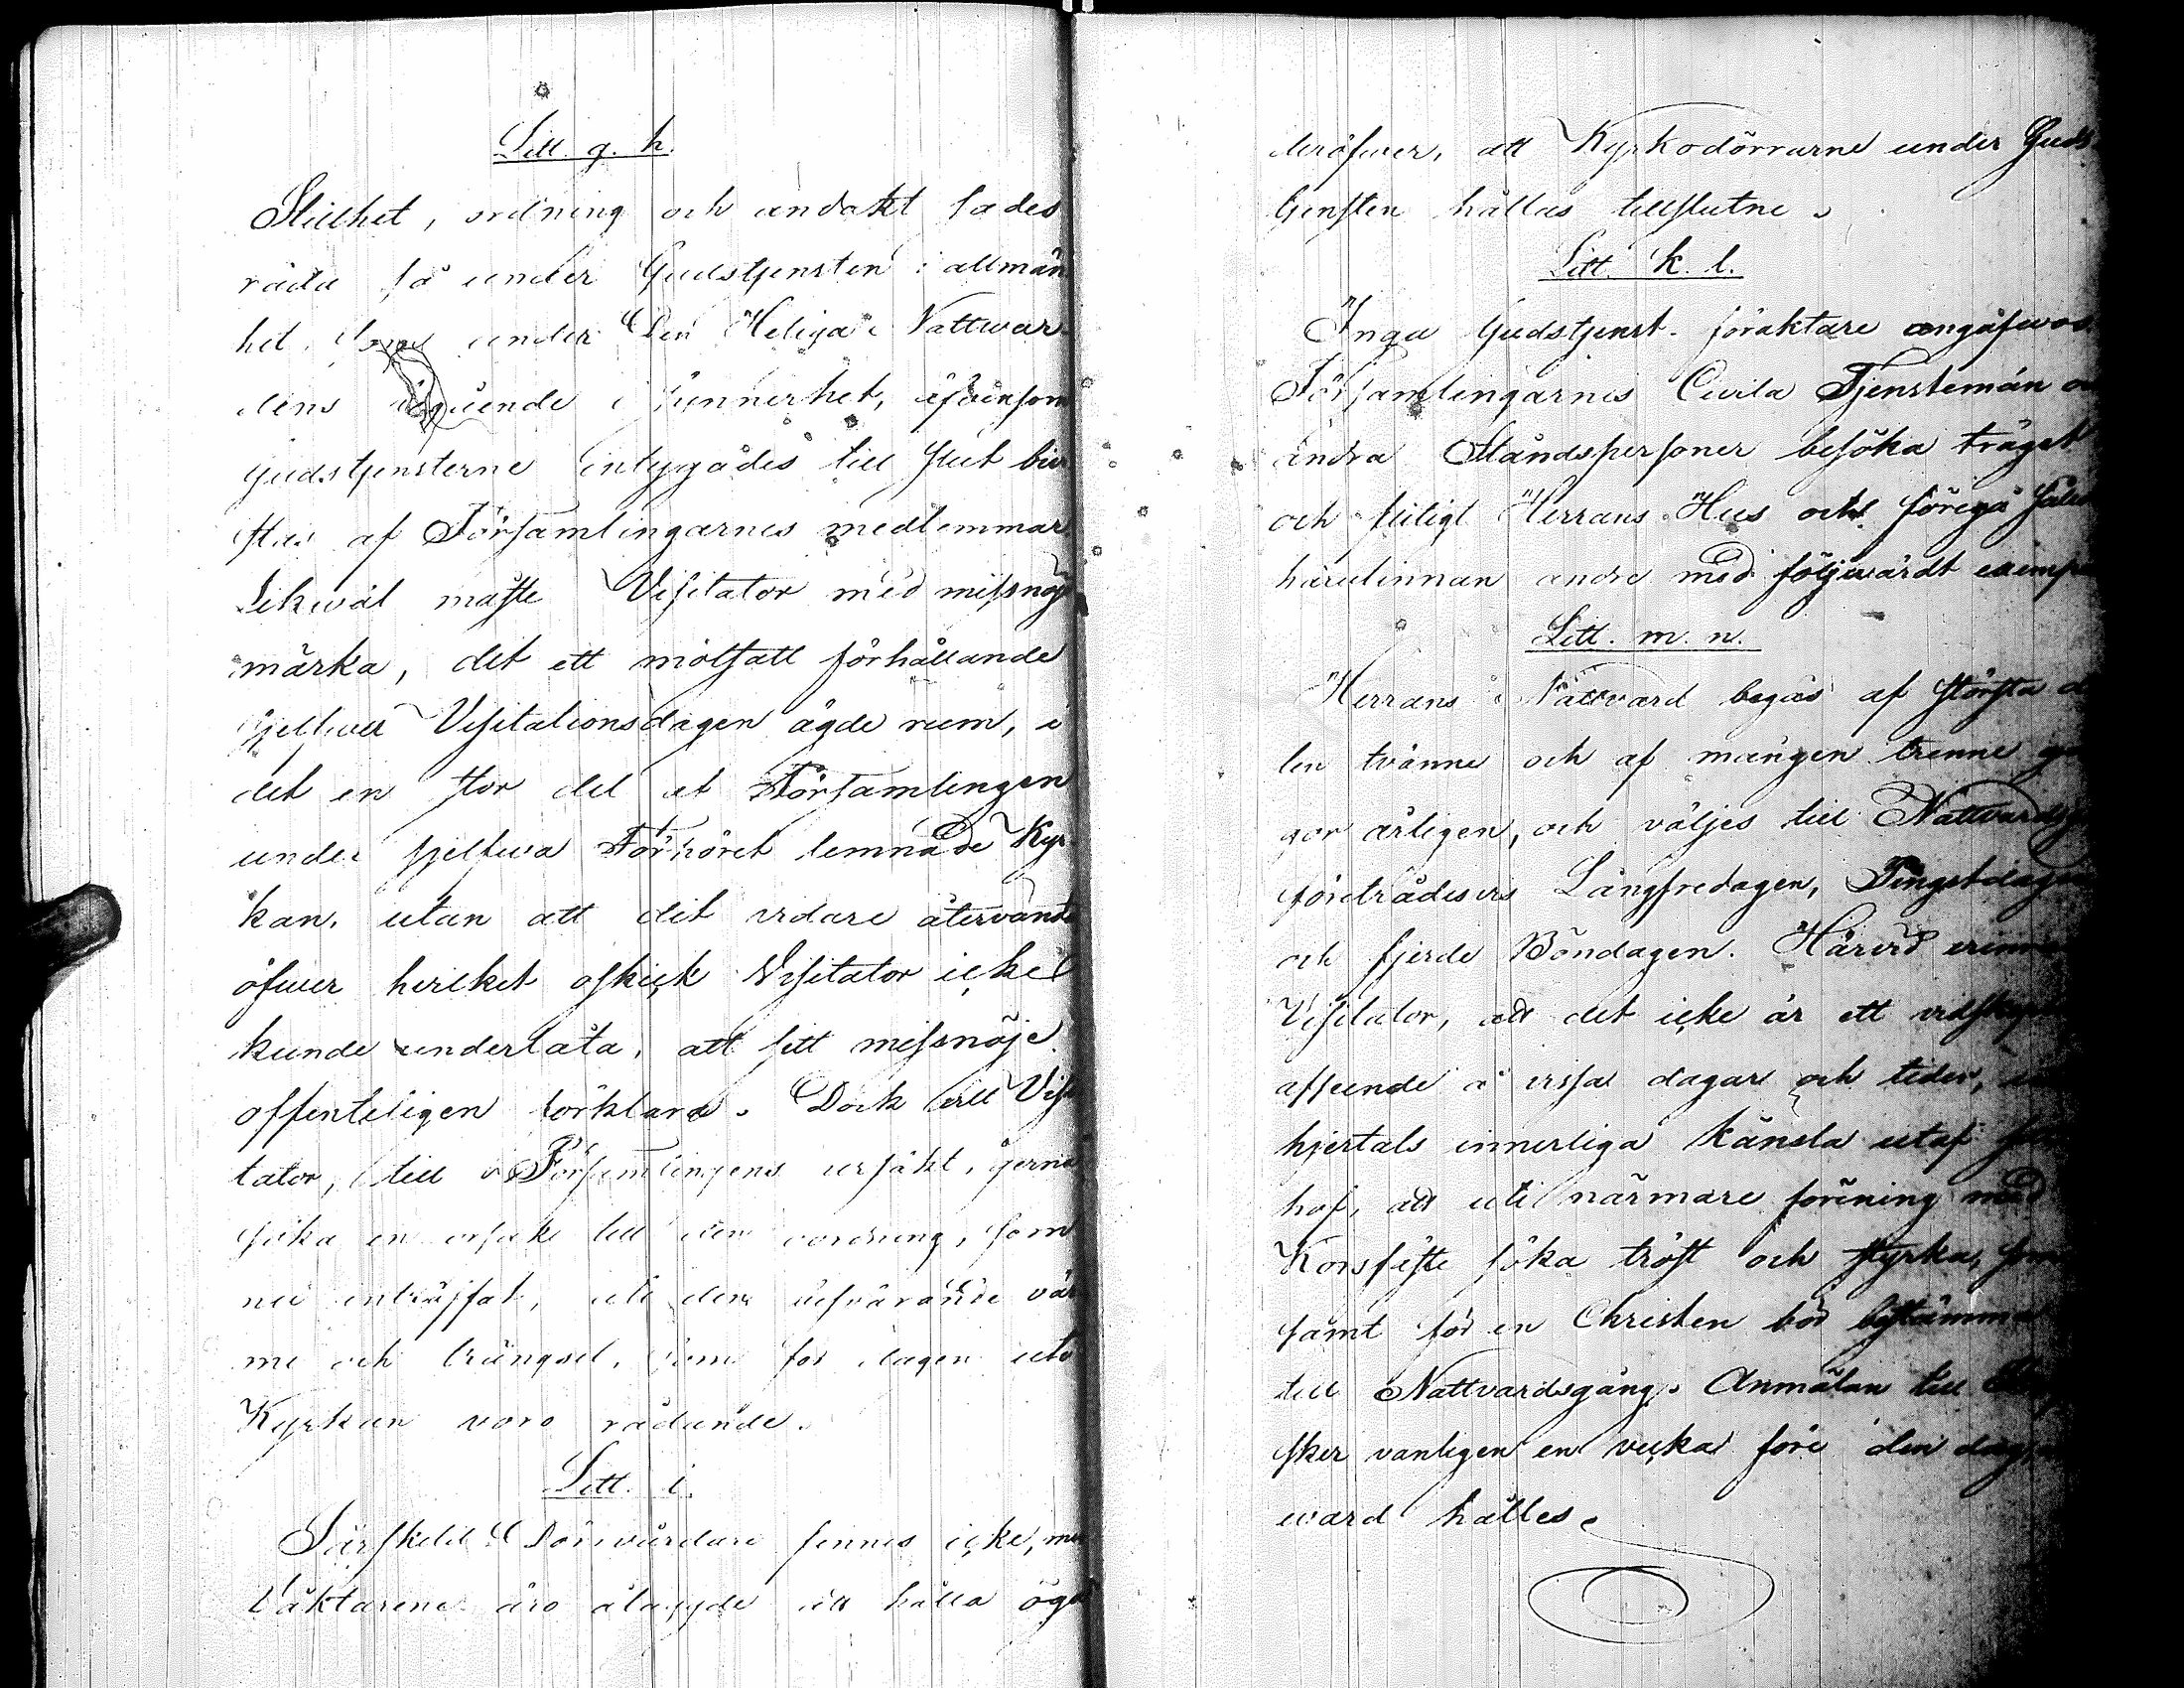 Litt. g. h.
Stillhet, ordning och andakt sades
råda så under Gudstjensten i allmän
het, som under Den Heliga Nattvar
dens begående i synnerhet, äfvensom
gudstjensterne intygades till slut bivi
stas af Församlingarnes medlemmar.
Likwäl måste Visitator med missnöje
märka, det ett motsatt förhållande
sjelfwa Visitationsdagen ägde rum, i
det en stor del af Församlingen
under sjelfwa Förhöret lemnade Kyr
kan, utan att dit vidare återvända
öfwer hvilket oskick Visitator icke
kunde underlåta, att sitt missnöje
offenteligen förklara. Dock vill Visi
tator, till Församlingens ursäkt, gerna
söka en orsak till den oordning, som
nu inträffat, uti den besvärande vär
me och trängsel, som för dagen uti
Kyrkan voro rådande.
Litt. i.
Särskild Dörrvårdare finnes icke, men
Väktarena äro ålagyde att hålla öga
deröfwer, att Kyrkodörrarne under Guds
tjensten hållas tillslutne.
Litt. k. l.
Inga Gudstjenst-föraktare angåfwos.
Församlingarnes Civila Tjenstemän o
andra Ståndspersoner besöka träget
och flitigt Herrans Hus och föregå
härutinnan andre med följwärdt exemp
Litt. m. n.
Herrans Nattvard begås af största d
len tvänne och af mången trenne gå
gor årligen, och väljes till Nattvards
företrädesvis Långfredagen, Pingstdag
och fjerde Böndagen. Härvid erinra
Visitator, att det icke är ett vidsk
afseende å vissa dagar och tider,
hjertats innerliga känsla utaf
hof, att uti närmare förening med
Korsfäste söka tröst och styrka, som
samt för en Christen bör bestämma
till Nattvardsgång. Anmälan till
sker vanligen en vecka före den dag,
ward hålles.